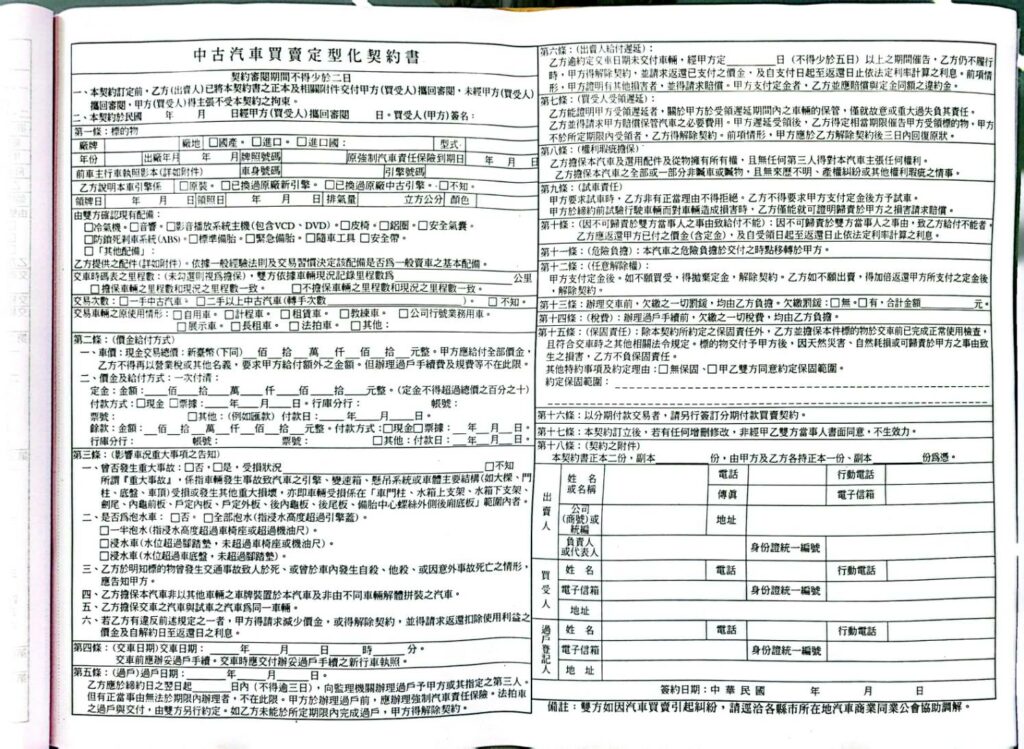 中古汽車買賣定型化契約書
契約審閱期間不得少於二日
一、本契約訂定前，乙方(出賣人)已將本契約書之正本及相關附件交付甲方(買受人)攜回審閱，未經甲方(買受人)
攜回審閱，甲方(買受人)得主張不受本契約之拘束。
二、本契約於民國　年　月　日經甲方(買受人)攜回審閱　日。買受人(甲方)簽名：
第一條：標的物
廠牌　廠地 □國產。□進口。□進口國：　型式
年份　出廠年月　年　月　牌照號碼　原強制汽車責任保險到期日　年　月　日
前車主行車執照影本(詳如附件)　車身號碼　引擎號碼
乙方說明本車引擎係 □原裝。□已換過原廠新引擎。□已換過原廠中古引擎。□不知。
領牌日　年　月　日　領照日　年　月　日　排氣量　立方公分　顏色
由雙方確認現有配備：
□冷氣機。□音響。□影音播放系統主機(包含VCD、DVD)。□皮椅。□鋁圈。□安全氣囊。
□防鎖死剎車系統(ABS)。□標準備胎。□緊急備胎。□隨車工具 □安全帶。
□「其他配備」：
乙方提供之配件(詳如附件)。依據一般經驗法則及交易習慣決該配備是否為一般賣車之基本配備。
交車時碼表之里程數：(未勾選則視為擔保)，雙方依據車輛現況記錄里程數為　公里
□擔保車輛之里程數和現況之里程一致。　□不擔保車輛之里程數和現況之里程數一致。
交易次數：□一手中古車。□二手以上中古汽車(轉手次數　)。□不知。
交易車輛之原使用情形：□自用車。□計程車。□租賃車。□教練車。□公司行號業務用車。
□展示車。□長租車。□法拍車。□其他：
第二條：(價金給付方式)
一、車價：現金交易總價：新臺幣(下同)　佰　拾　萬　仟　佰　拾　元整。甲方應給付全部價金，
乙方不得再以營業稅或其他名義，要求甲方給付額外之金額。但辦理過戶手續費及規費等不在此限。
二、價金及給付方式：一次付清：
定金：金額：　佰　拾　萬　仟　佰　拾　元整。(定金不得超過總價之百分之十)
付款方式：□現金 □票據：　年　月　日。行庫分行：　帳號：
票號：　□其他：(例如匯款) 付款日：　年　月　日。
餘款：金額：　佰　拾　萬　仟　佰　拾　元整。付款方式：□現金□票據：　年　月　日。
行庫分行：　帳號：　票號：　□其他：付款日：　年　月　日。
第三條：(影響車況重大事項之告知)
一、曾否發生重大事故：□否。□是，受損狀況　□不知
所謂『重大事故』，係指車輛發生事故致汽車之引擎、變速箱、懸吊系統或車體主要結構(如大樑、門
柱、底盤、車頂)受損或發生其他重大損壞，亦即車輛受損係在「車門柱、水箱上支架、水箱下支架、
劍尾、內龜板前、戶定內板、戶定外板、後內龜板、後尾板、備胎中心螺絲外側後廂底板」範圍內者。
二、是否為泡水車：□否。□全部泡水(指浸水高度超過引擎蓋)。
□一半泡水(指浸水高度超過車椅座或超過機油尺)。
□浸水車(水位超過腳踏墊，未超過車椅座或機油尺)。
□浸水車(水位超過車底盤，未超過腳踏墊)。
三、乙方於明知標的物曾發生交通事故致人於死、或曾於車內發生自殺、他殺、或因意外事故死亡之情形，
應告知甲方。
四、乙方擔保本汽車非以其他車輛之車牌裝置於本汽車及非由不同車輛解體拼裝之汽車。
五、乙方擔保交車之汽車與試車之汽車為同一車輛。
六、若乙方有違反前述規定之一者，甲方得請求減少價金，或得解除契約，並得請求返還扣除使用利益之
價金及自解約日至返還日之利息。
第四條：(交車日期)交車日期：　年　月　日　時　分。
交車前應辦妥過戶手續。交車時應交付辦妥過戶手續之新行車執照。
第五條：(過戶)過戶日期：　年　月　日。
乙方應於締約日之翌日起　日內(不得逾三日)，向監理機關辦理過戶予甲方或其指定之第三人。
但有正當事由無法於期限內辦理者，不在此限。甲方於辦理過戶前，應辦理強制汽車責任保險。法拍車
之過戶與交付，由雙方另行約定。如乙方未能於所定期限內完成過戶，甲方得解除契約。
第六條：(出賣人給付遲延)：
乙方逾約定交車日期未交付車輛，經甲方定　日(不得少於五日)以上之期間催告，乙方仍不履行
時，甲方得解除契約，並請求返還已支付之價金，及自支付日起至返還日止依法定利率計算之利息。前項情
形，甲方證明有其他損害者，並得請求損害賠償。甲方支付定金者，乙方並應賠償與定金同額之違約金。
第七條：(買受人受領遲延)
乙方能證明甲方受領遲延者，關於甲方於受領遲延期間內之車輛的保管，僅就故意或重大過失負其責任。
乙方並得請求甲方賠償保管汽車之必要費用。甲方遲延受領後，乙方得定相當期限催告甲方受領標的物，甲方
不於所定期限內受領者，乙方得解除契約。前項情形，甲方應於乙方解除契約後三日內回復原狀。
第八條：(權利瑕疵擔保)
乙方擔保本汽車及選用配件及從物擁有所有權，且無任何第三人得對本汽車主張任何權利。
乙方擔保本汽車之全部或一部分非贓車或贓物，且無來歷不明、產權糾紛或其他權利瑕疵之情事。
第九條：(試車責任)
甲方要求試車時，乙方非有正當理由不得拒絕。乙方不得要求甲方支付定金後方予試車。
甲方於締約前試駕行駛車輛而對車輛造成損害時，乙方僅能就可證明歸責於甲方之損害請求賠償。
第十條：(因不可歸責於雙方當事人之事由致給付不能)：因不可歸責於雙方當事人之事由，致乙方給付不能者，
乙方應返還甲方已付之價金(含定金)，及自受領日起至返還日止依法定利率計算之利息。
第十一條：(危險負擔)：本汽車之危險負擔於交付之時點移轉於甲方。
第十二條：(任意解除權)：
甲方支付定金後。如不願買受，得拋棄定金，解除契約。乙方如不願出賣，得加倍返還甲方所支付之定金後
解除契約。
第十三條：辦理交車前，欠繳之一切罰鍰，均由乙方負擔。欠繳罰鍰：□無。□有，合計金額　元。
第十四條：(稅費)：辦理過戶手續前，欠繳之一切稅費，均由乙方負擔。
第十五條：(保固責任)：除本契約所約定之保固責任外，乙方並擔保本件標的物於交車前已完成正常使用檢查，
且符合交車時之其他相關法令規定。標的物交付予甲方後，因天然災害、自然耗損或可歸責於甲方之事由致
生之損害，乙方不負保固責任。
其他特約事項及約定理由：□無保固、□甲乙雙方同意約定保固範圍。
約定保固範圍：
第十六條：以分期付款交易者，請另行簽訂分期付款買賣契約。
第十七條：本契約訂立後，若有任何增刪修改，非經甲乙雙方當事人書面同意，不生效力。
第十八條：(契約之附件)
本契約書正本二份，副本　份，由甲方及乙方各持正本一份、副本　份為憑。
出賣人　姓名或名稱　電話　行動電話
傳真　電子信箱
公司(商號)或統編　地址
負責人或代表人　身份證統一編號
買受人　姓名　電話　行動電話
電子信箱　身份證統一編號
地址
過戶登記人　姓名　電話　行動電話
電子信箱　身份證統一編號
地址
簽約日期：中華民國　年　月　日
備註：雙方如因汽車買賣引起糾紛，請逕洽各縣市所在地汽車商業同業公會協助調解。